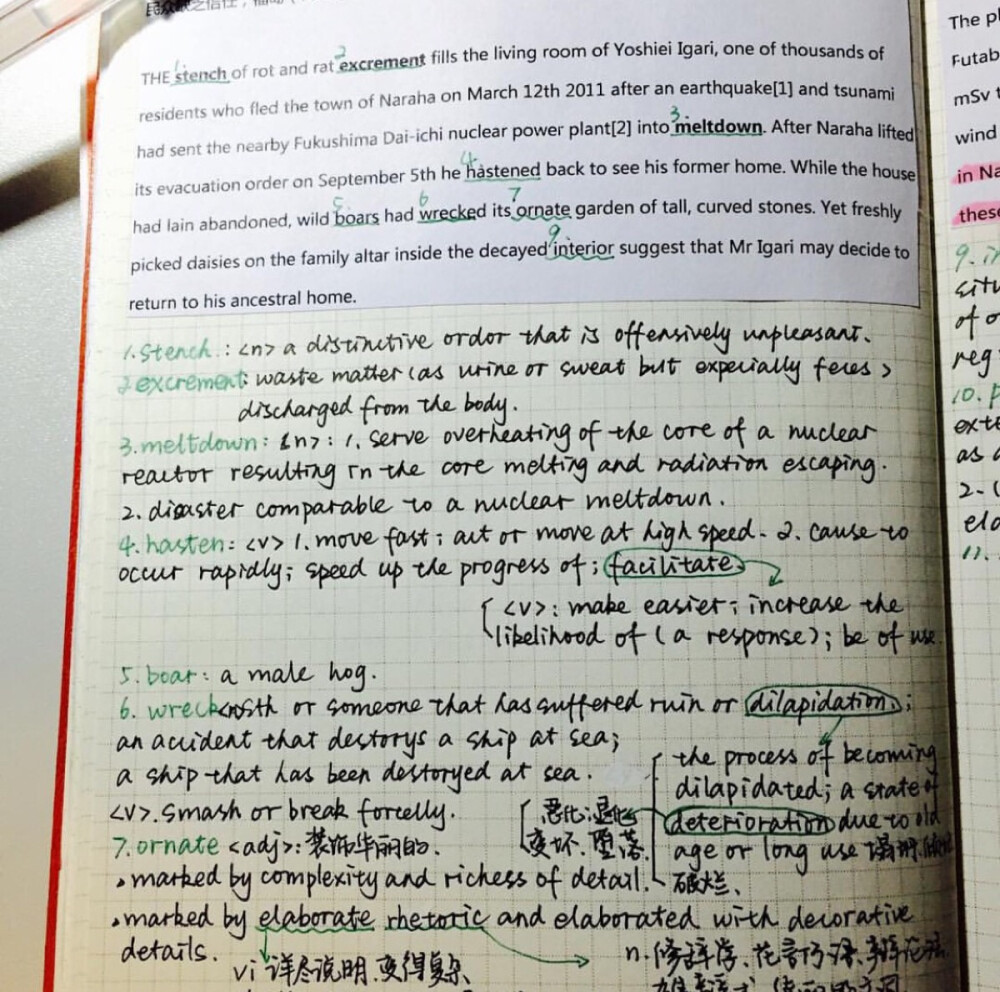 THE stench of rot and rat excrement fills the living room of Yoshiei Igari, one of thousands of
residents who fled the town of Naraha on March 12th 2011 after an earthquake[1] and tsunami
had sent the nearby Fukushima Dai-ichi nuclear power plant[2] into meltdown. After Naraha lifted
its evacuation order on September 5th he hastened back to see his former home. While the house
had lain abandoned, wild boars had wrecked its ornate garden of tall, curved stones. Yet freshly
picked daisies on the family altar inside the decayed interior suggest that Mr Igari may decide to
return to his ancestral home.
1. stench : <n> a distinctive ordor that is offensively unpleasant.
2 excrement: waste matter (as urine or sweat but expecially feces >
discharged from the body.
3. meltdown: <n>: 1. serve overheating of the core of a nuclear
reactor resulting in the core melting and radiation escaping.
2. disaster comparable to a nuclear meltdown.
4. hasten: <v> 1. move fast; act or move at high speed. 2. cause to
occur rapidly; speed up the progress of; facilitate
<v>: make easier; increase the
likelihood of (a response); be of use
5. boar: a male hog.
6. wreck: <n> sth or someone that has suffered ruin or dilapidation;
an accident that destorys a ship at sea;
a ship that has been destoryed at sea.
the process of becoming
dilapidated; a state of
deterioration due to old
age or long use
破烂、
<v>. smash or break forcelly.
恶化;退化
变坏、堕落
7. ornate <adj>: 装饰华丽的.
. marked by complexity and richess of detail.
. marked by elaborate rhetoric and elaborated with decorative
details.
vi 详尽说明.变得复杂
n. 修辞学、花言巧语
The pl
Futab
mSv t
wind
in Na
these
9. in
situ
of o
reg
10. p
exte
as a
2.
ela
11.